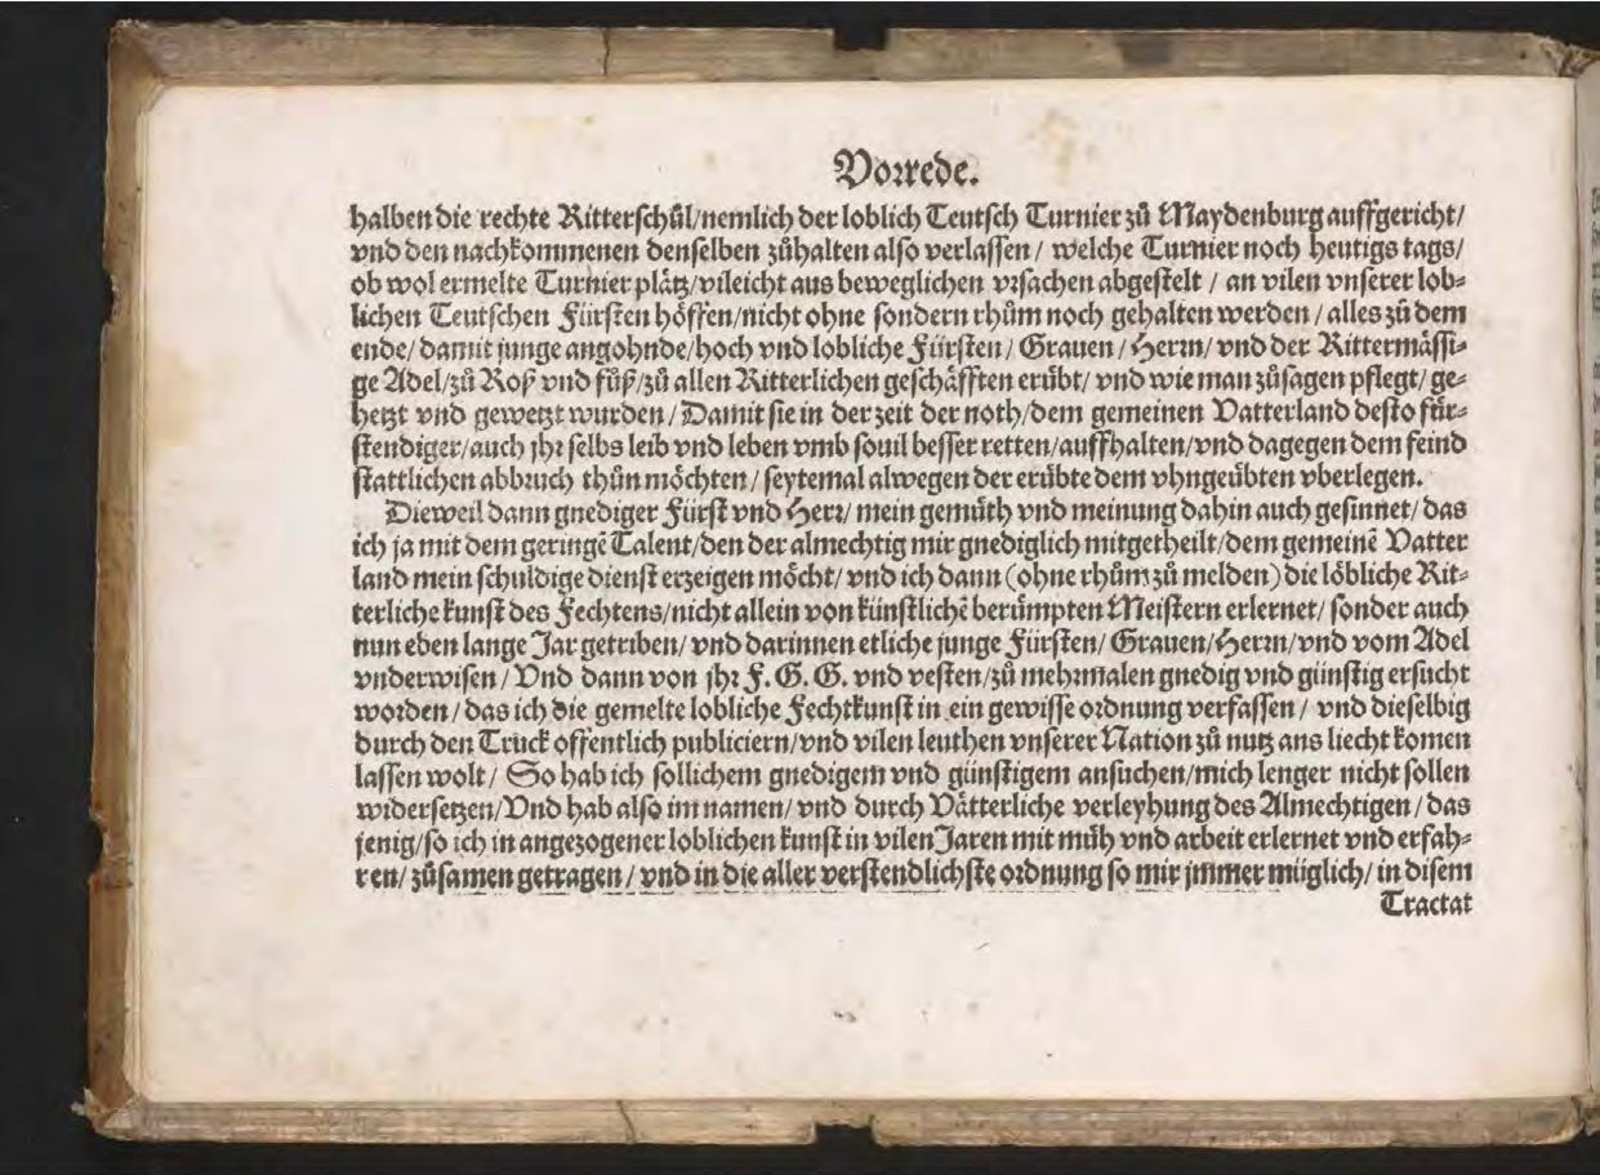 Vorrede.
halben die rechte Ritterschůl/nemlich der loblich Teutsch Turnier zů Maydenburg auffgericht/
vnd den nachkommenen denselben zůhalten also verlassen / welche Turnier noch heutigs tags/
ob wol ermelte Turnier plätz/vileicht aus beweglichen vrsachen abgestelt / an vilen vnserer lob-
lichen Teutschen Fürsten höffen/nicht ohne sondern rhům noch gehalten werden / alles zů dem
ende/ damit junge angohnde/hoch vnd lobliche Fürsten/ Grauen / Herrn/ vnd der Rittermässi-
ge Adel/zů Roß vnd fůß/zů allen Ritterlichen geschäfften erübt/ vnd wie man zůsagen pflegt/ ge-
hetzt vnd gewetzt wurden / Damit sie in der zeit der noth/dem gemeinen Vatterland desto für-
stendiger/auch jhr selbs leib vnd leben vmb souil besser retten/auffhalten/vnd dagegen dem feind
stattlichen abbruch thůn möchten / seytemal alwegen der erübte dem vhngeübten vberlegen.
Dieweil dann gnediger Fürst vnd Herr/ mein gemüth vnd meinung dahin auch gesinnet/ das
ich ja mit dem geringē Talent/den der almechtig mir gnediglich mitgetheilt/dem gemeinē Vatter
land mein schuldige dienst erzeigen möcht/ vnd ich dann (ohne rhům zů melden) die löbliche Rit-
terliche kunst des Fechtens/nicht allein von künstlichē berümpten Meistern erlernet/ sonder auch
nun eben lange Jar getriben/ vnd darinnen etliche junge Fürsten/ Grauen/Herrn/vnd vom Adel
vnderwisen / Vnd dann von jhr F. G. G. vnd vesten/zů mehrmalen gnedig vnd günstig ersucht
worden / das ich die gemelte lobliche Fechtkunst in ein gewisse ordnung verfassen / vnd dieselbig
durch den Truck offentlich publiciern/vnd vilen leuthen vnserer Nation zů nutz ans liecht komen
lassen wolt / So hab ich sollichem gnedigem vnd günstigem ansuchen/mich lenger nicht sollen
widersetzen/Vnd hab also im namen/ vnd durch Vätterliche verleyhung des Almechtigen / das
jenig/so ich in angezogener loblichen kunst in vilen Jaren mit müh vnd arbeit erlernet vnd erfah-
ren/ zůsamen getragen / vnd in die aller verstendlichste ordnung so mir jmmer müglich/ in disem
Tractat